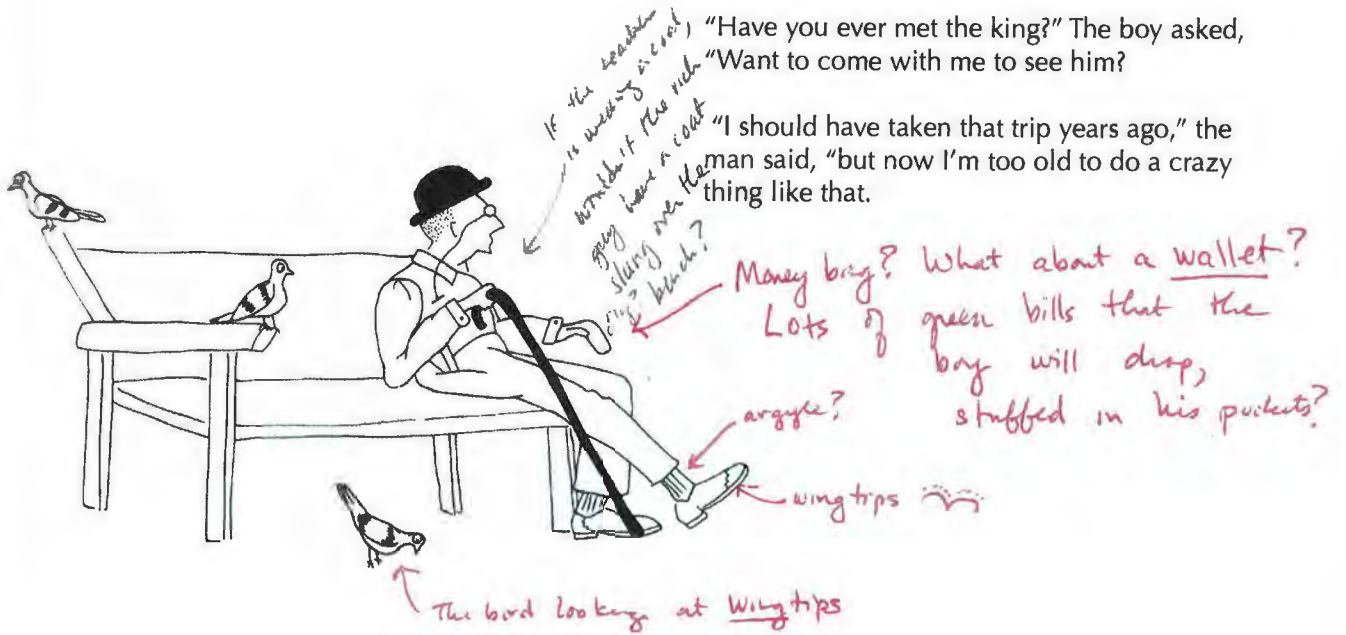 "Have you ever met the king?" The boy asked,
"Want to come with me to see him?
"I should have taken that trip years ago," the
man said, "but now I'm too old to do a crazy
thing like that.
If the teacher
is wearing a coat,
wouldn't the rich
guy have a coat
slung over the
bench?
Money bag? What about a wallet?
Lots of green bills that the
boy will drop,
stuffed in his pockets?
argyle?
wingtips
The bird looking at wingtips